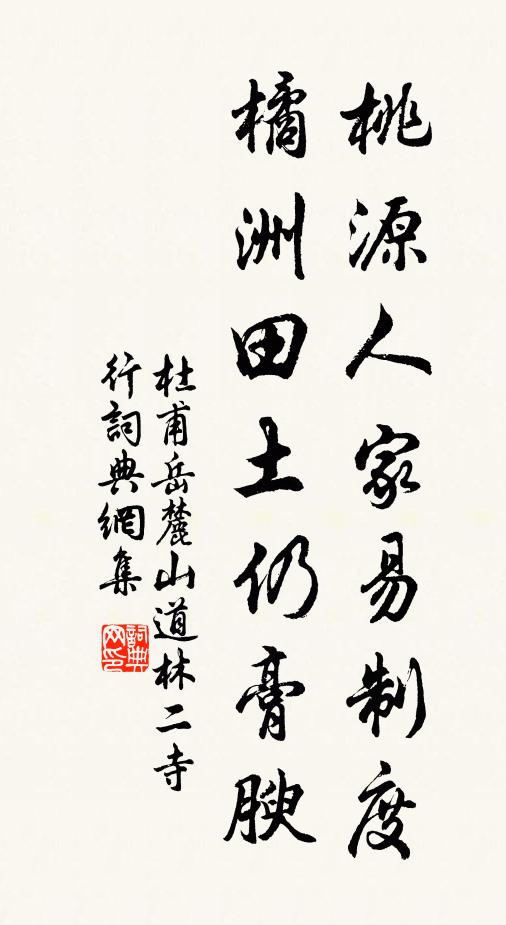 桃源人家易制度
橘洲田土仍膏腴
杜甫岳麓山道林二寺
行詞典網集
詞典
网印